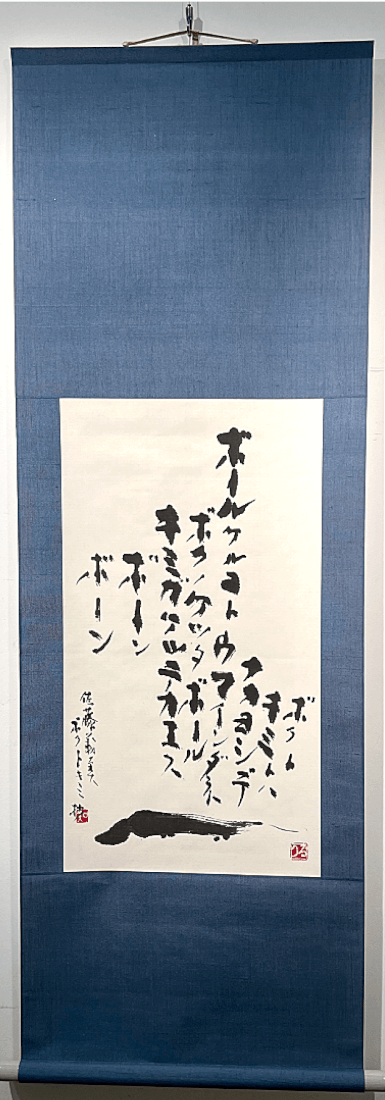 ボクト
キミトハ
ナカヨシデ
ボールケルコトウマインダネ
ボクノケッタボール
キミガケッテカエス
ボーン
ボーン
佐藤義美
ボクトキミ